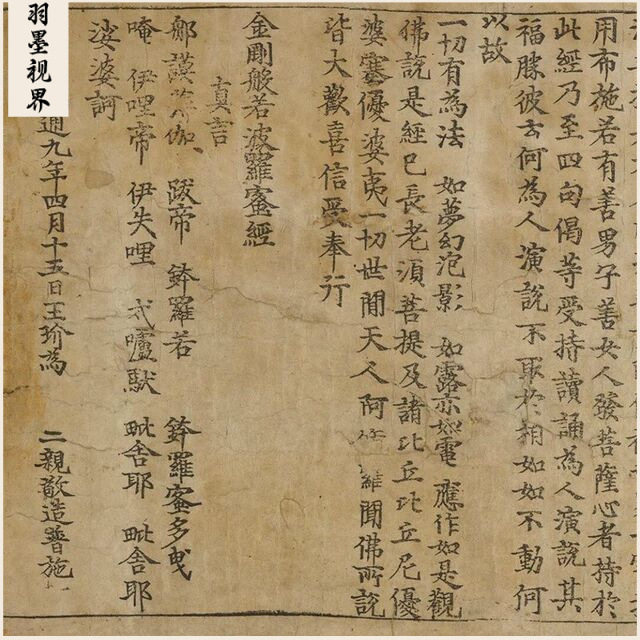 用布施若有善男子善女人發菩薩心者持於
此經乃至四句偈等受持讀誦為人演說其
福勝彼云何為人演說不取於相如如不動何
以故
一切有為法 如夢幻泡影 如露亦如電 應作如是觀
佛說是經已長老須菩提及諸比丘比丘尼優
婆塞優婆夷一切世間天人阿脩羅聞佛所說
皆大歡喜信受奉行
金剛般若波羅蜜經
真言
那謨 伽 跋帝 鉢羅若 鉢羅蜜多曳
唵 伊哩帝 伊失哩 戍嚧馱 毗舍耶 毗舍耶
娑婆訶
通九年四月十五日王玠為 二親敬造普施
羽墨视界